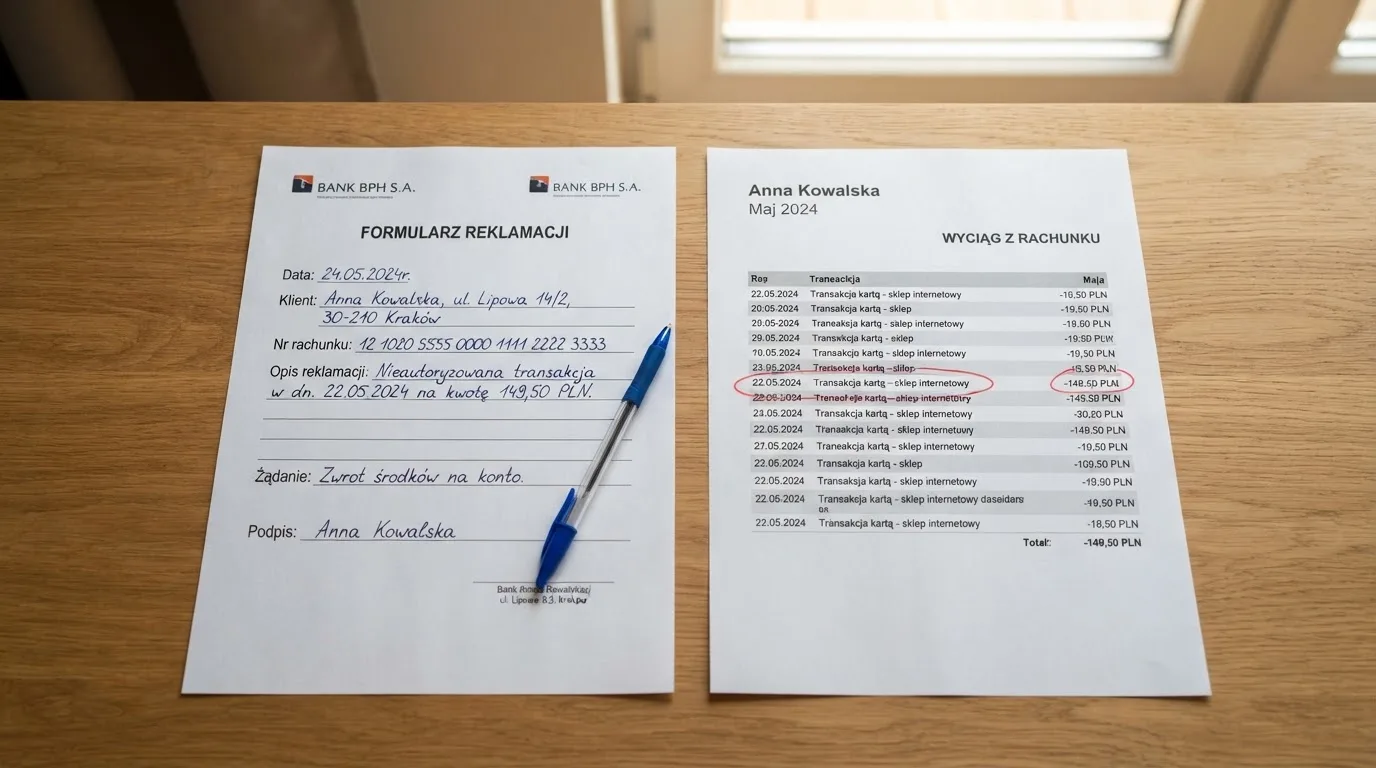 BANK BPH S.A.
BANK BPH S.A.
FORMULARZ REKLAMACJI
Data: 24.05.2024r.
Klient: Anna Kowalska, ul. Lipowa 14/2,
30-210 Kraków
Nr rachunku: 12 1020 5555 0000 1111 2222 3333
Opis reklamacji: Nieautoryzowana transakcja
w dn. 22.05.2024 na kwotę 149,50 PLN.
Żądanie: Zwrot środków na konto.
Podpis: Anna Kowalska
Bank
ul. Lipowe
Anna Kowalska
Maj 2024
WYCIĄG Z RACHUNKU
Rog Traneaclqja Maja
22.05.2024 Transakcja kartą - sklep internetowy -16,50 PLN
20.05.2024 Transakcja kartą - sklep -19,50 PLN
20.05.2024 Traneaksja kartą - sklep internetowy -18,60 PLN
29.05.2024 Transakcja kartą - sklep
10.05.2024 Transakcja kartą - sklep internetowy -19,50 PLN
kartą
22.05.2024 Transakcja kartą - sklep internetowy -148.50 PLN
23.05.2024 Transakcja kartą - sklep internetowy -30,20 PLN
22.05.2024 kartą - sklep -149.50 PLN
27.05.2024 Traneakcja kartą - sklep internetowy -19,50 PLN
22.05.2024 Transakcja kartą - sklep -109,50 PLN
22.05.2024 Transakcja kartą - sklep internetowy -19,90 PLN
22.05.2024 Transakcja kartą - sklep internetowy daseidars -49,50 PLN
22.05.2024 Transakcja kartą - sklep internetowy -18,50 PLN
Total: -149,50 PLN